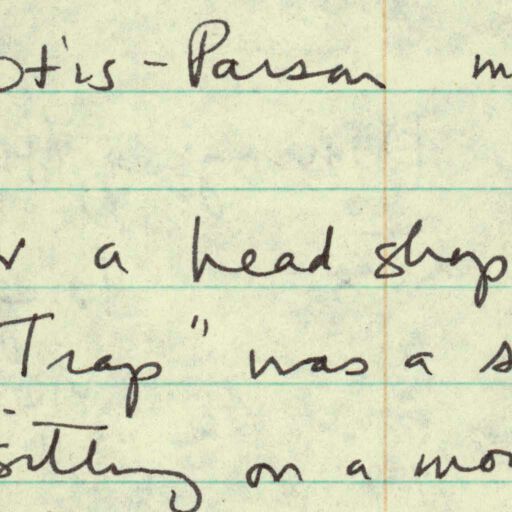 Otis-Parson m
a head shop
Trap" was a s
sitting on a mo